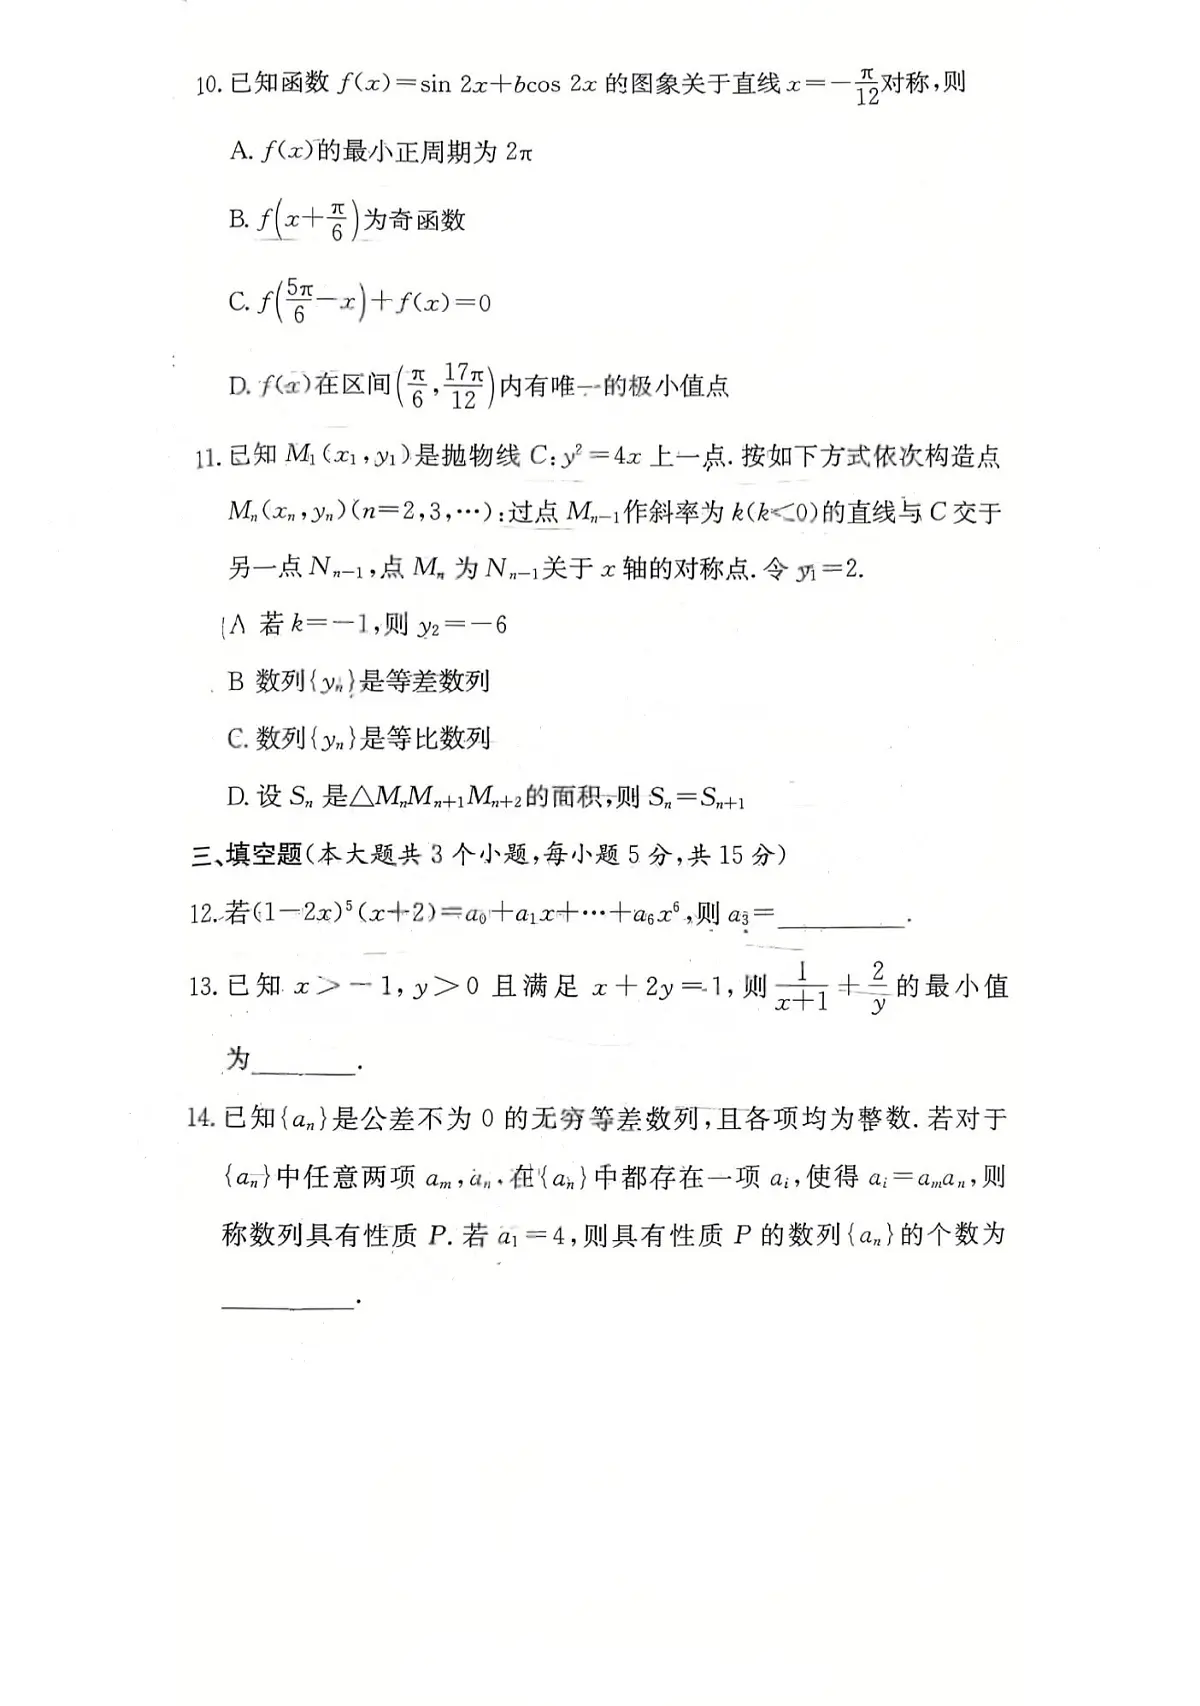 10. 已知函数 f(x)=sin 2x+bcos 2x 的图象关于直线 x=-π/12对称,则
A. f(x)的最小正周期为 2π
B. f(x+π/6)为奇函数
C. f(5π/6-x)+f(x)=0
D. f(x)在区间(π/6,17π/12)内有唯一的极小值点
11. 已知 M₁(x₁,y₁)是抛物线 C:y²=4x 上一点. 按如下方式依次构造点
Mₙ(xₙ,yₙ)(n=2,3,…):过点 Mₙ₋₁作斜率为 k(k<0)的直线与 C 交于
另一点 Nₙ₋₁,点 Mₙ 为 Nₙ₋₁关于 x 轴的对称点. 令 y₁=2.
A 若 k=-1,则 y₂=-6
B 数列{yₙ}是等差数列
C. 数列{yₙ}是等比数列
D. 设 Sₙ 是△MₙMₙ₊₁Mₙ₊₂的面积,则 Sₙ=Sₙ₊₁
三、填空题(本大题共 3 个小题,每小题 5 分,共 15 分)
12. 若(1-2x)⁵(x+2)=a₀+a₁x+…+a₆x⁶,则 a₃=________.
13. 已知 x>-1,y>0 且满足 x+2y=1,则 1/(x+1)+2/y的最小值
为________.
14. 已知{aₙ}是公差不为 0 的无穷等差数列,且各项均为整数. 若对于
{aₙ}中任意两项 aₘ,aₙ,在{aₙ}中都存在一项 aᵢ,使得 aᵢ=aₘaₙ,则
称数列具有性质 P. 若 a₁=4,则具有性质 P 的数列{aₙ}的个数为
________.